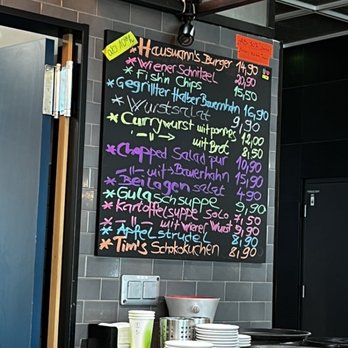 * Hausmann's Burger 14,50
* Wiener Schnitzel 20,90
* Fish'n Chips 15,50
* Gegrillter Halber Bauernhahn 16,90
* Wurstsalat 9,90
* Currywurst mit pommes 12,00
mit Brot 8,50
* Chopped Salad pur 10,90
mit Bauernhahn 15,90
* Beilagen salat 4,90
* Gulaschsuppe 9,90
* Kartoffelsuppe Solo 7,50
mit wiener Wurst 9,90
* Apfelstrudel 8,90
* Tim's Schokokuchen 8,90